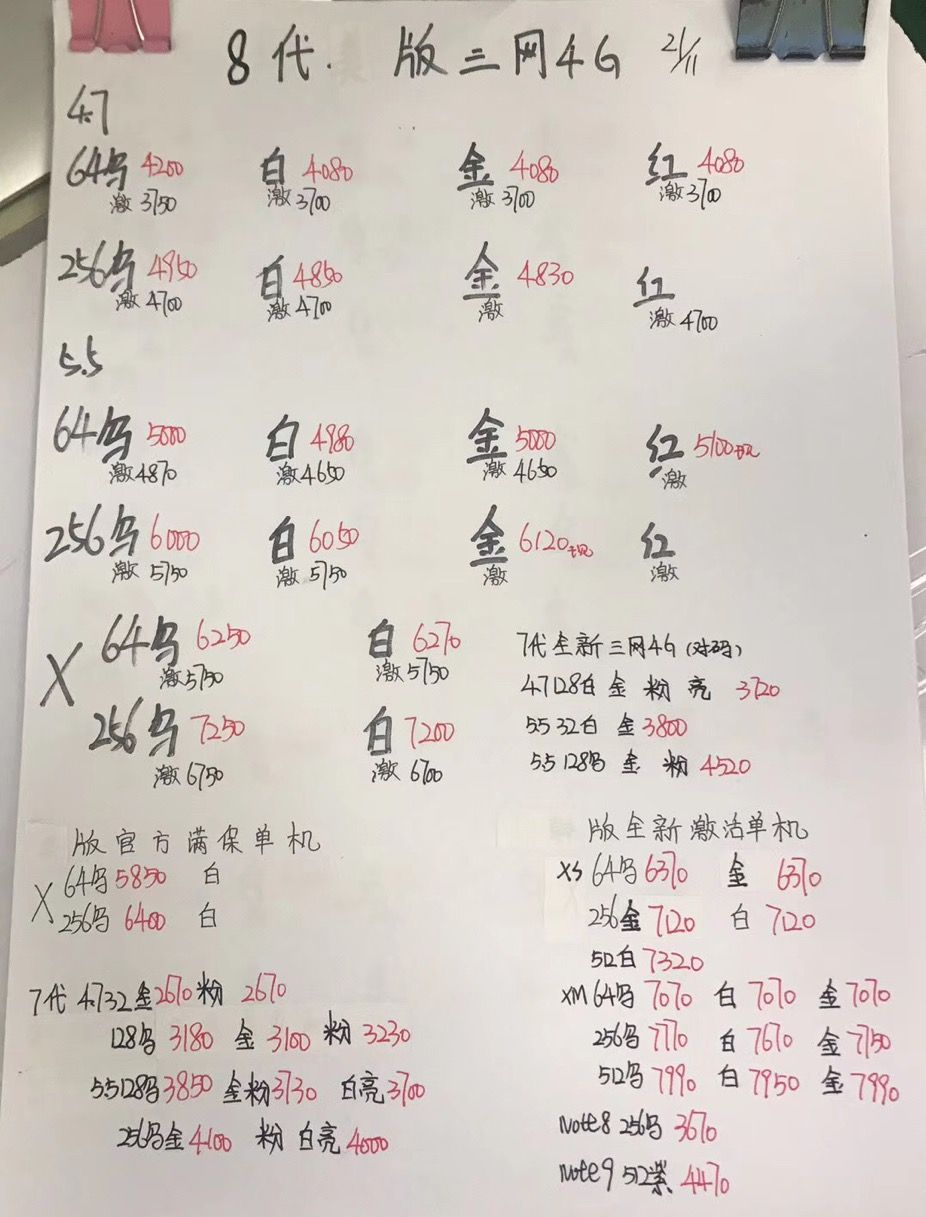 8代. 版三网4G 21/11
4.7
64乌 4200 白 4080 金 4080 红 4080
激3750 激3700 激3700 激3700
256乌 4950 白 4850 金 4830 红
激4700 激4700 激 激4700
5.5
64乌 5000 白 4980 金 5000 红 5100
激4870 激4650 激4650 激
256乌 6000 白 6050 金 6120 红
激5750 激5750 激 激
X 64乌 6250 白 6270
激5750 激5750
256乌 7250 白 7200
激6750 激6700
7代全新三网4G(对码)
4.7 128白 金 粉 亮 3720
5.5 32白 金 3800
5.5 128乌 金 粉 4520
版官方满保单机
X 64乌 5850 白
256乌 6400 白
7代 4.7 32金 2670 粉 2670
128乌 3180 金 3100 粉 3230
5.5 128乌 3850 金粉 3730 白亮 3700
256乌金 4100 粉 白亮 4000
版全新激活单机
XS 64乌 6370 金 6370
256金 7120 白 7120
512白 7320
XM 64乌 7070 白 7070 金 7070
256乌 7770 白 7670 金 7750
512乌 7990 白 7950 金 7990
Note8 256乌 3670
Note9 512紫 4470